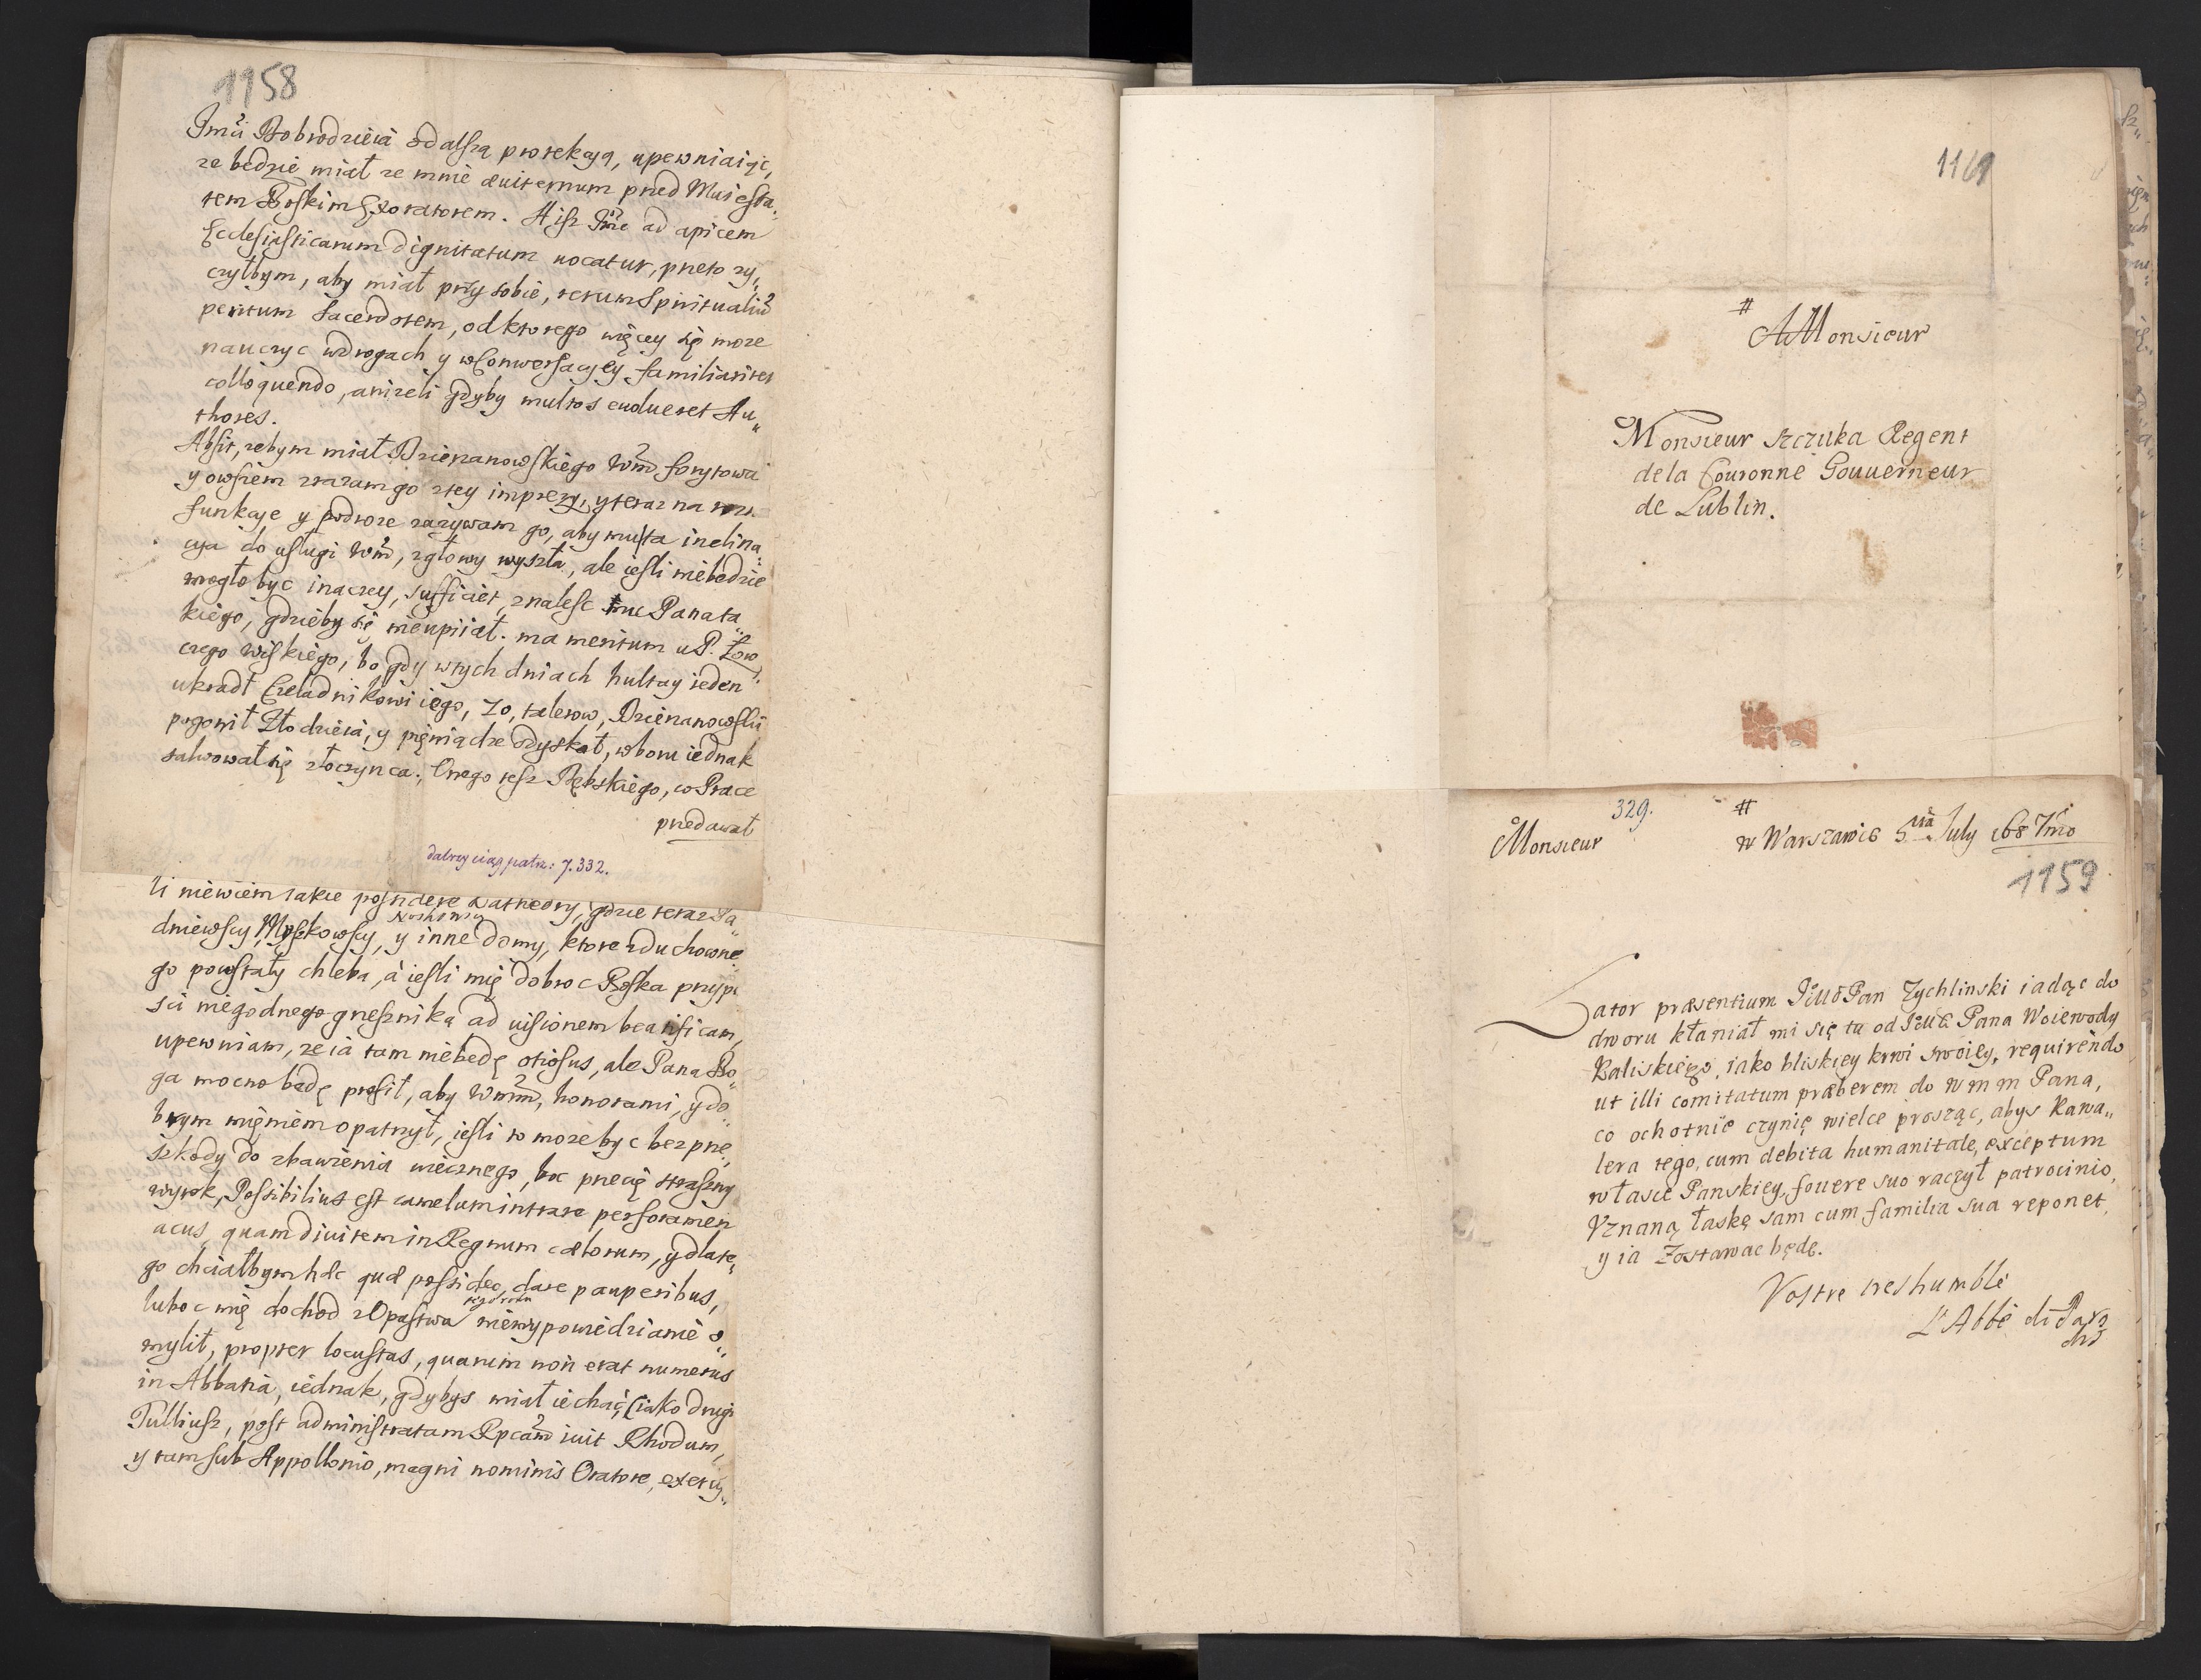 1158
Jmci Dobrodzieia z dalszą protekcyą, upewniaiąc,
ze będzie miał ze mnie æviternum przed Maiesta„
tem Boskim Exoratorem. A isz Jmc ad apicem
Ecclesiasticarum dignitatum vocatur, przeto zy„
czyłbym, aby miał przy sobie, rerum Spiritualiu
peritum Sacerdotem, od ktorego więcey się moze
nauczyc w drogach y w Conwersacyey familiariter
colloquendo, anizeli gdyby multos evolueret Au„
thores.
Absit, zebym miał Dzierzanowskiego Wm forytowac
y owszem zrazam go z tey imprezy, y teraz na
funkcye y podroze zazywam go, aby mu ta inclina„
cya do usługi Wm, z głowy wyszła, ale iesli niebedzie
mogło byc inaczey, sufficiet, znalesc mu Pana ta„
kiego, gdzieby się nieupiiał. ma meritum u P. Łow„
czego Wiskiego, bo gdy w tych dniach hultay ieden
ukradł Czeladnikowi iego, 70, talerow, Dzierzanowski
pogonił Złodzieia, y pięniądze odyskał, w boru iednak
salwował się złoczynca; Onego tesz Rębskiego, w Prace
przedawał
dalszy ciąg patrz: 7.332.
li niewiem iakie posridere Kathedry, gdzie teraz Ra„
dniewscy, Myszkowscy, y inne domy, ktore z duchowne„
go powstały chleba, à iesli mię dobroc Boska przypu
sci niegodnego grzesznika ad visionem beatificam,
upewniam, ze ia tam niebedę otiosus, ale Pana Bo„
ga mocno będę prosił, aby Wmm, honorami, y do„
brym mięniem opatrzył, iesli to moze byc bez prze„
szkody do zbawienia wiecznego, boc przecię straszny
wyrok, Possibilius est camelum intrare per foramen
acus, quam divitem in Regnum cælorum, y dlate„
go chciałbym hæc quæ possideo, dare pauperibus,
luboc mię dochod z Opastwa niewypowiedzianie o„
mylił, propter locustas, quarum non erat numerus
in Abbatia, iednak, gdybys miał iechac, (iako drugi
Tulliusz, post administratam Rpcam ivit Rhodum,
y tam sub Appollonio, magni nominis Oratore, exercy„
1169
#
A Monsieur
Monsieur Szczuka Regent
de la Couronne Gouuerneur
de Lublin.
329.
#
Monsieur
w Warszawie 5ta July 1687mo
1159
Lator præsentium JMć Pan Zychlinski iadąc do
dworu kłaniał mi się tu od JMći Pana Woiewody
Kaliskiego, iako bliskiey krwi swoiey, requirendo
ut illi comitatum præberem do W m m Pana,
co ochotnie czynię wielce prosząc, abys Kawa„
lera tego, cum debita humanitate, exceptum
w łasce Panskiey, fovere suo raczył patrocinio,
Vznaną łaskę sam cum familia sua reponet,
y ia Zostawac będę.
Vostre treshumble
L'Abbé di